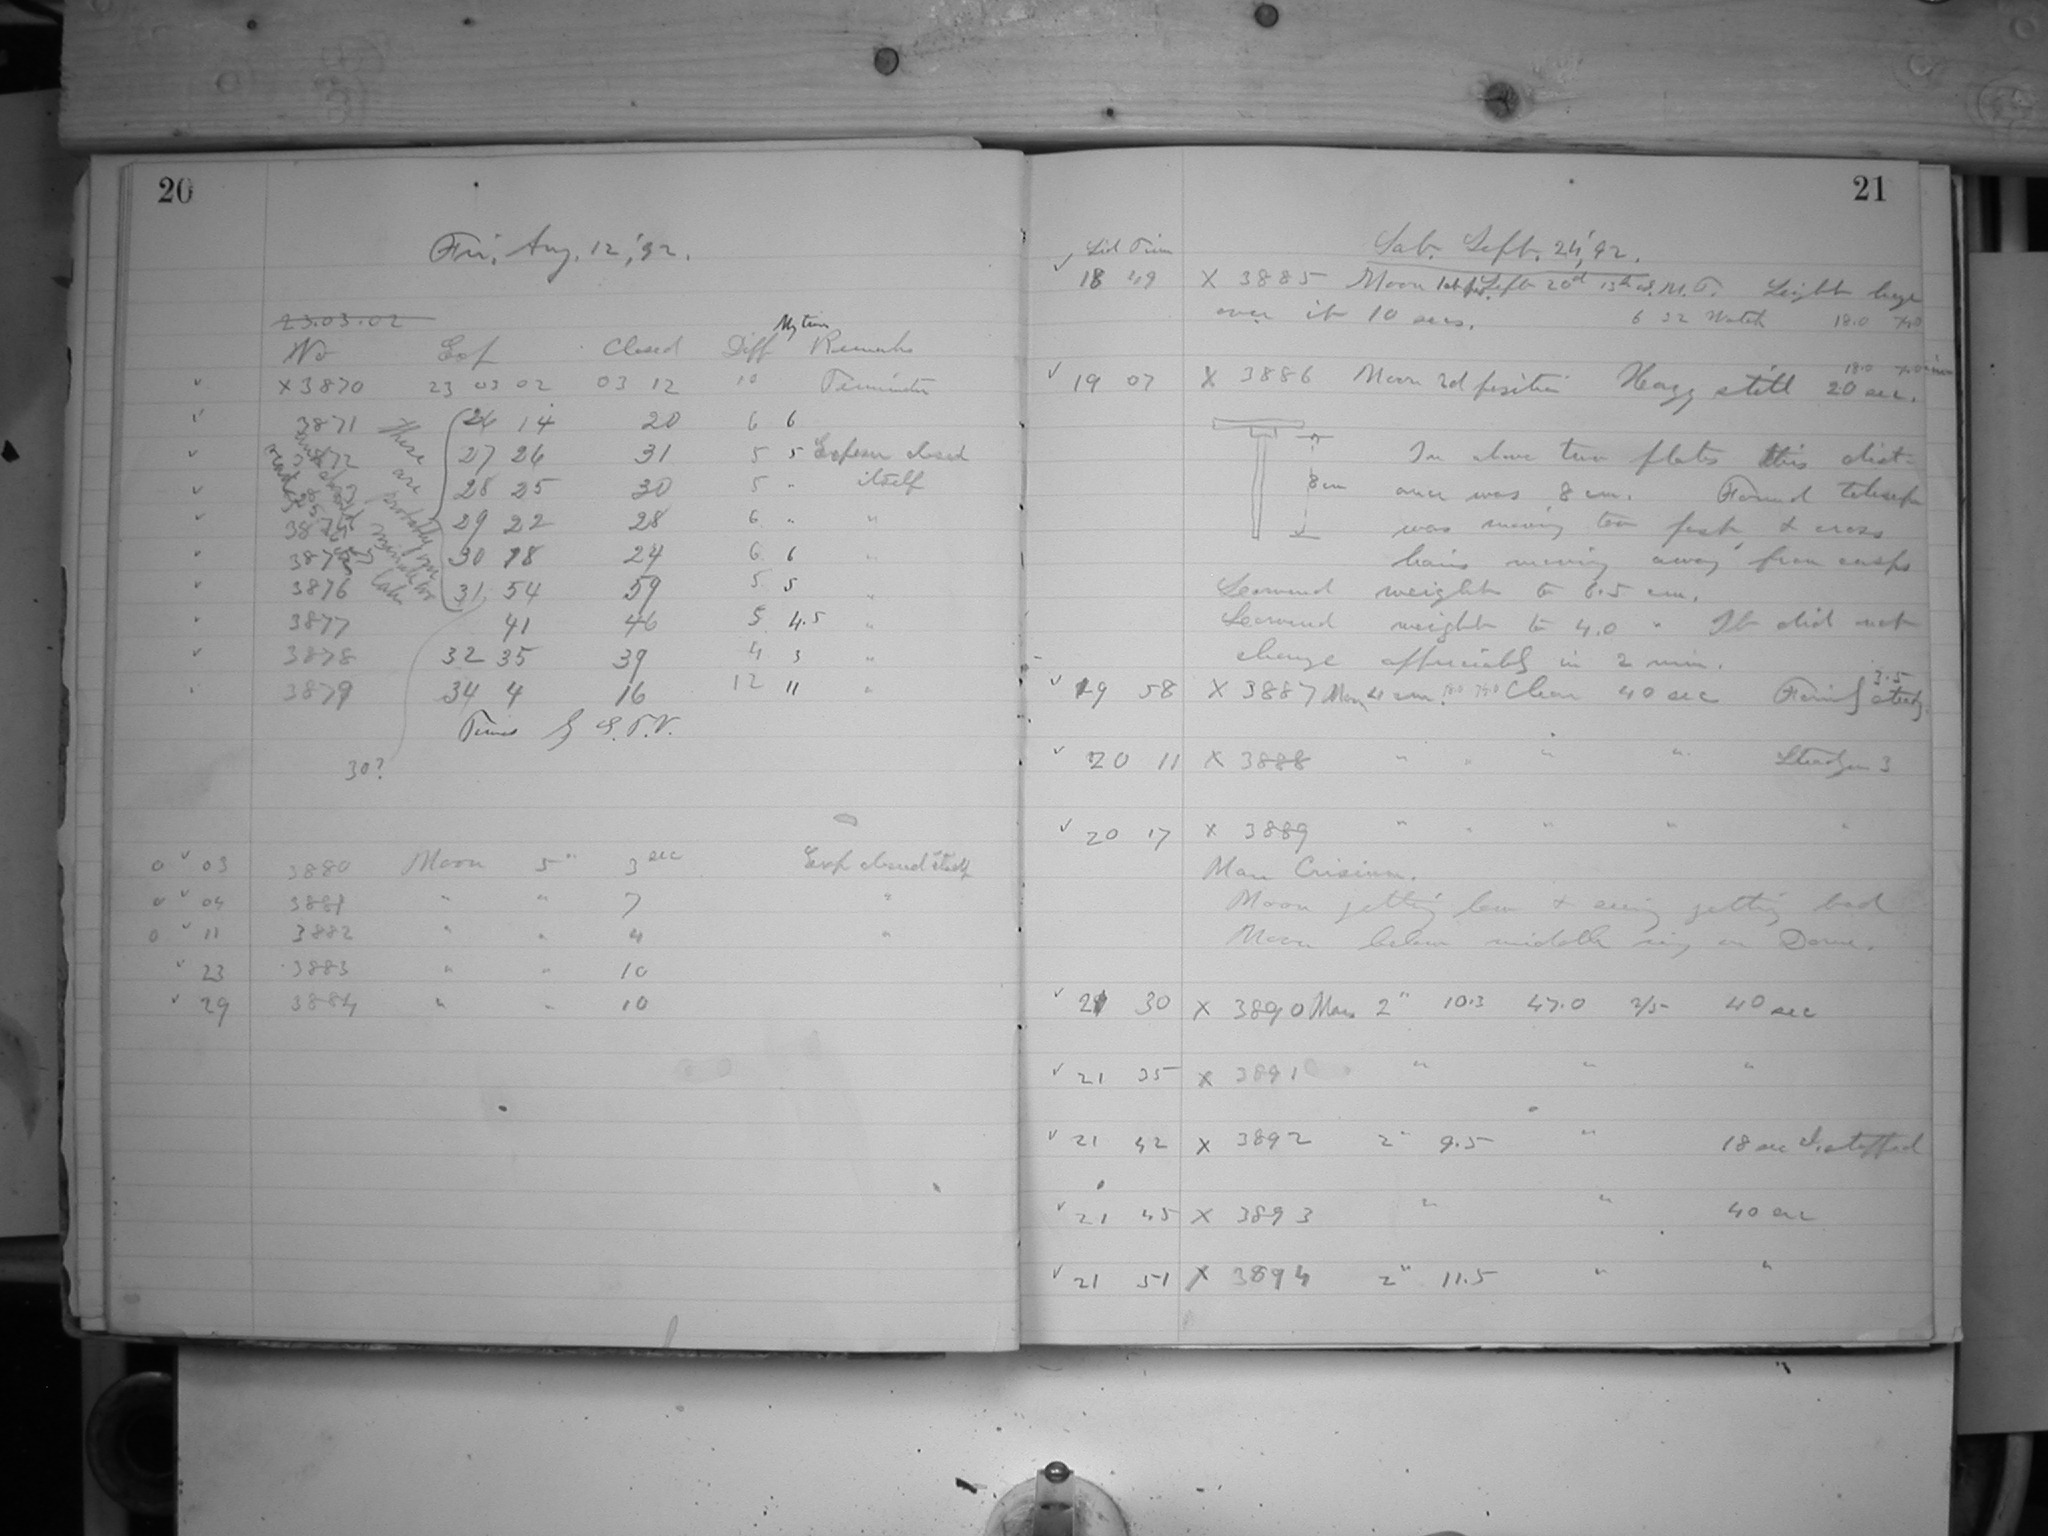 20
Fri, Aug. 12, '92.
23.03.02
My time
No Exp Closed Diff Remarks
✓ × 3870 23 03 02 03 12 10 Terminator
✓ 3871 26 14 20 6 6
✓ 3872 27 26 31 5 5 Exposer closed
✓ 28 25 30 5 " itself
✓ 29 22 28 6 " "
✓ 3875 30 18 24 6 6 "
✓ 3876 31 54 59 5 5 "
✓ 3877 41 46 5 4.5 "
✓ 3878 32 35 39 4 3 "
3879 34 4 16 12 11 "
These are probably one minute too late
Times by S.T.V.
30?
0 ✓ 03 3880 Moon 5" 3 sec Exp closed itself
0 ✓ 04 3881 " " 7 "
0 ✓ 11 3882 " " 4 "
✓ 23 3883 " " 10
✓ 29 3884 " " 10
21
Sab. Sept. 24, '92.
Sid Time
✓ 18 49 × 3885 Moon 1st pos. Sept 20d 13h G.M.T. Light haze
over it 10 secs. 6 32 Watch 18.0 74.0
✓ 19 07 × 3886 Moon 2d position Hazy still 20 sec.
8 cm
In above two plates this dist-
ance was 8 cm. Found telescope
was moving too fast, & cross
hairs moving away from cusps
Lowered weight to 6.5 cm.
Lowered weight to 4.0 " It did not
change appreciably in 2 min.
✓ 19 58 × 3887 Moon 4 cm. Clear 40 sec Fairly steady. 3.5
✓ 20 11 × 3888 " " " " Steadier 3
✓ 20 17 × 3889 " " " " "
Mare Crisium.
Moon getting low & seeing getting bad
Moon below middle ring on Dome.
✓ 21 30 × 3890 Mars 2" 10.3 47.0 2/5 40 sec
✓ 21 35 × 3891 " " "
✓ 21 42 × 3892 2" 9.5 " 18 sec & stopped
✓ 21 45 × 3893 " " 40 sec
✓ 21 51 × 3894 2" 11.5 " "